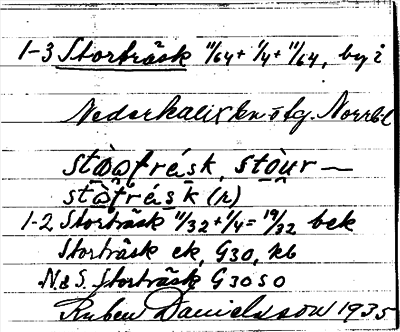 1-3 Storträsk 11/64 + 1/4 + 11/64, by i
Nederkalix sn o. tg. Norrb. l
stòo̯frésk, stòur —
stò̯frésk (n)
1-2 Storträsk 11/32 + 1/4 = 19/32 bek
Storträsk ek, G30, kb
N & S. Storträsk G30 SO
Ruben Danielsson 1935